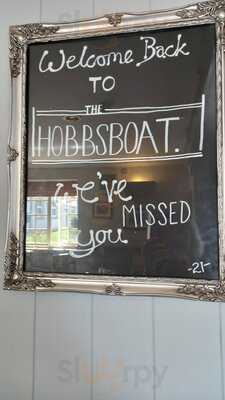 Welcome Back
TO
THE
HOBBSBOAT.
We've
MISSED
you
-21-
Sluurpy